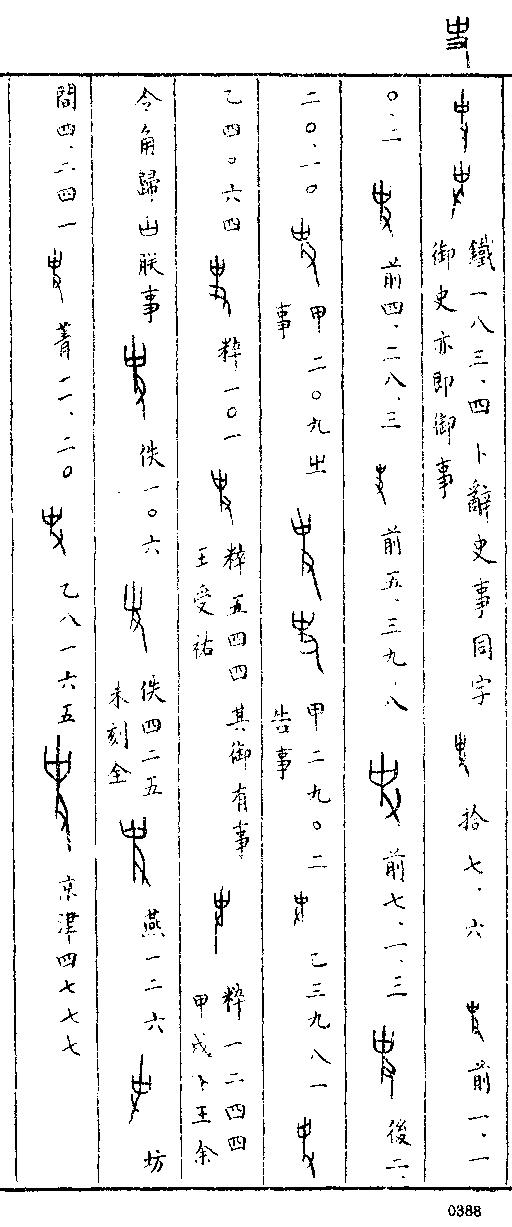 鐵一八三．四 卜辭史事同字
御史亦即御事
拾七．六 前一．一
〇．二 前四．二八．三 前五．三九．八 前七．一．三 後二．
二〇．一〇 甲二〇九出
事
甲二九〇二
告事
乙三九八一
乙四〇六四 粹一〇一 粹五四四其御有事
王受祐
粹一二四四
甲戌卜王余
令角歸㞢朕事 佚一〇六 佚四二五
未刻全
燕一二六 坊
間四．二四一 菁一一．二〇 乙八一六五 京津四七七七
0388